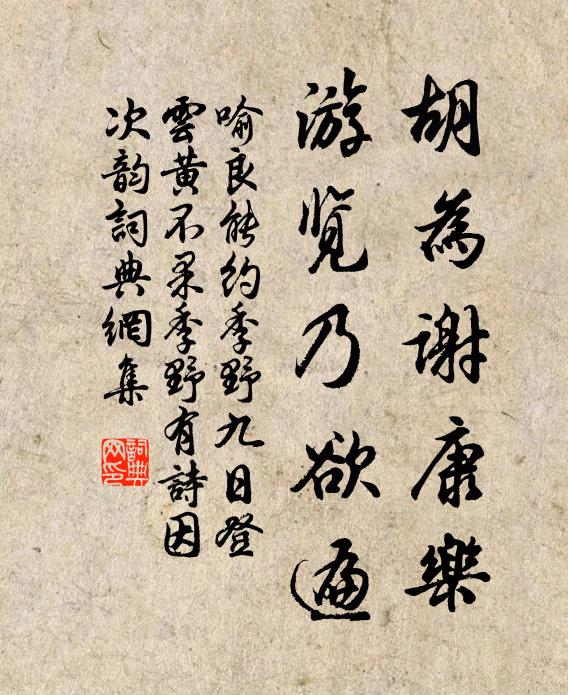 胡為謝康樂
游覽乃欲遍
喻良能約季野九日登
雲黄不果季野有詩因
次韵詞典網集
詞典网印